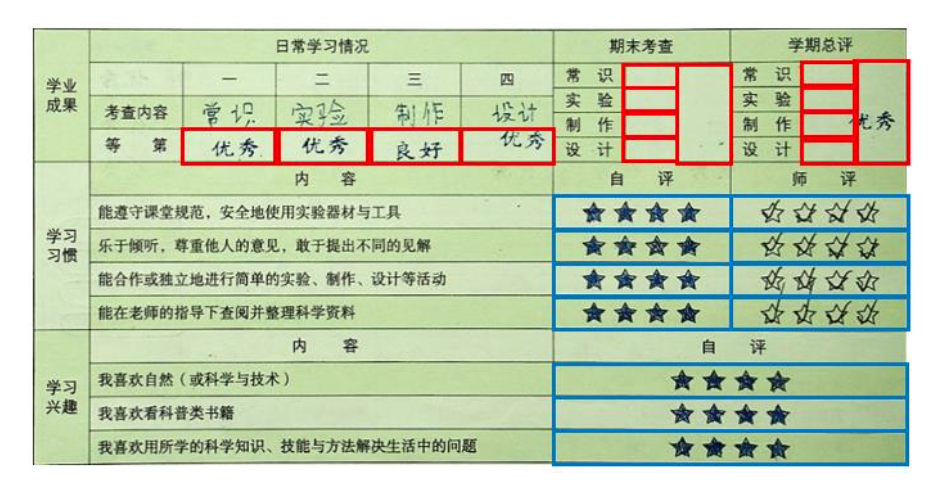 日常学习情况 期末考查 学期总评
学业成果 一 二 三 四 常识 常识
考查内容 常识 实验 制作 设计 实验 实验
制作 制作 优秀
等第 优秀 优秀 良好 优秀 设计 设计
内容 自评 师评
能遵守课堂规范，安全地使用实验器材与工具
学习习惯 乐于倾听，尊重他人的意见、敢于提出不同的见解
能合作或独立地进行简单的实验、制作、设计等活动
能在老师的指导下查阅并整理科学资料
内容 自评
我喜欢自然（或科学与技术）
学习兴趣 我喜欢看科普类书籍
我喜欢用所学的科学知识、技能与方法解决生活中的问题